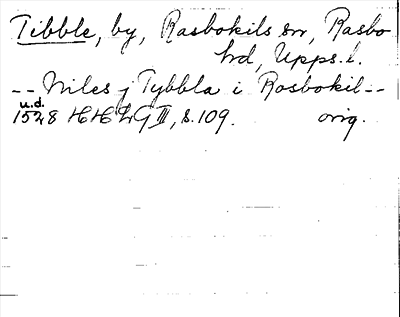 Tibble, by, Rasbokils sn, Rasbo
hd, Upps. l.
-- Niles j Tybbla i Rosbokil --
u.d.
1528 HH LG III, s. 109. orig.